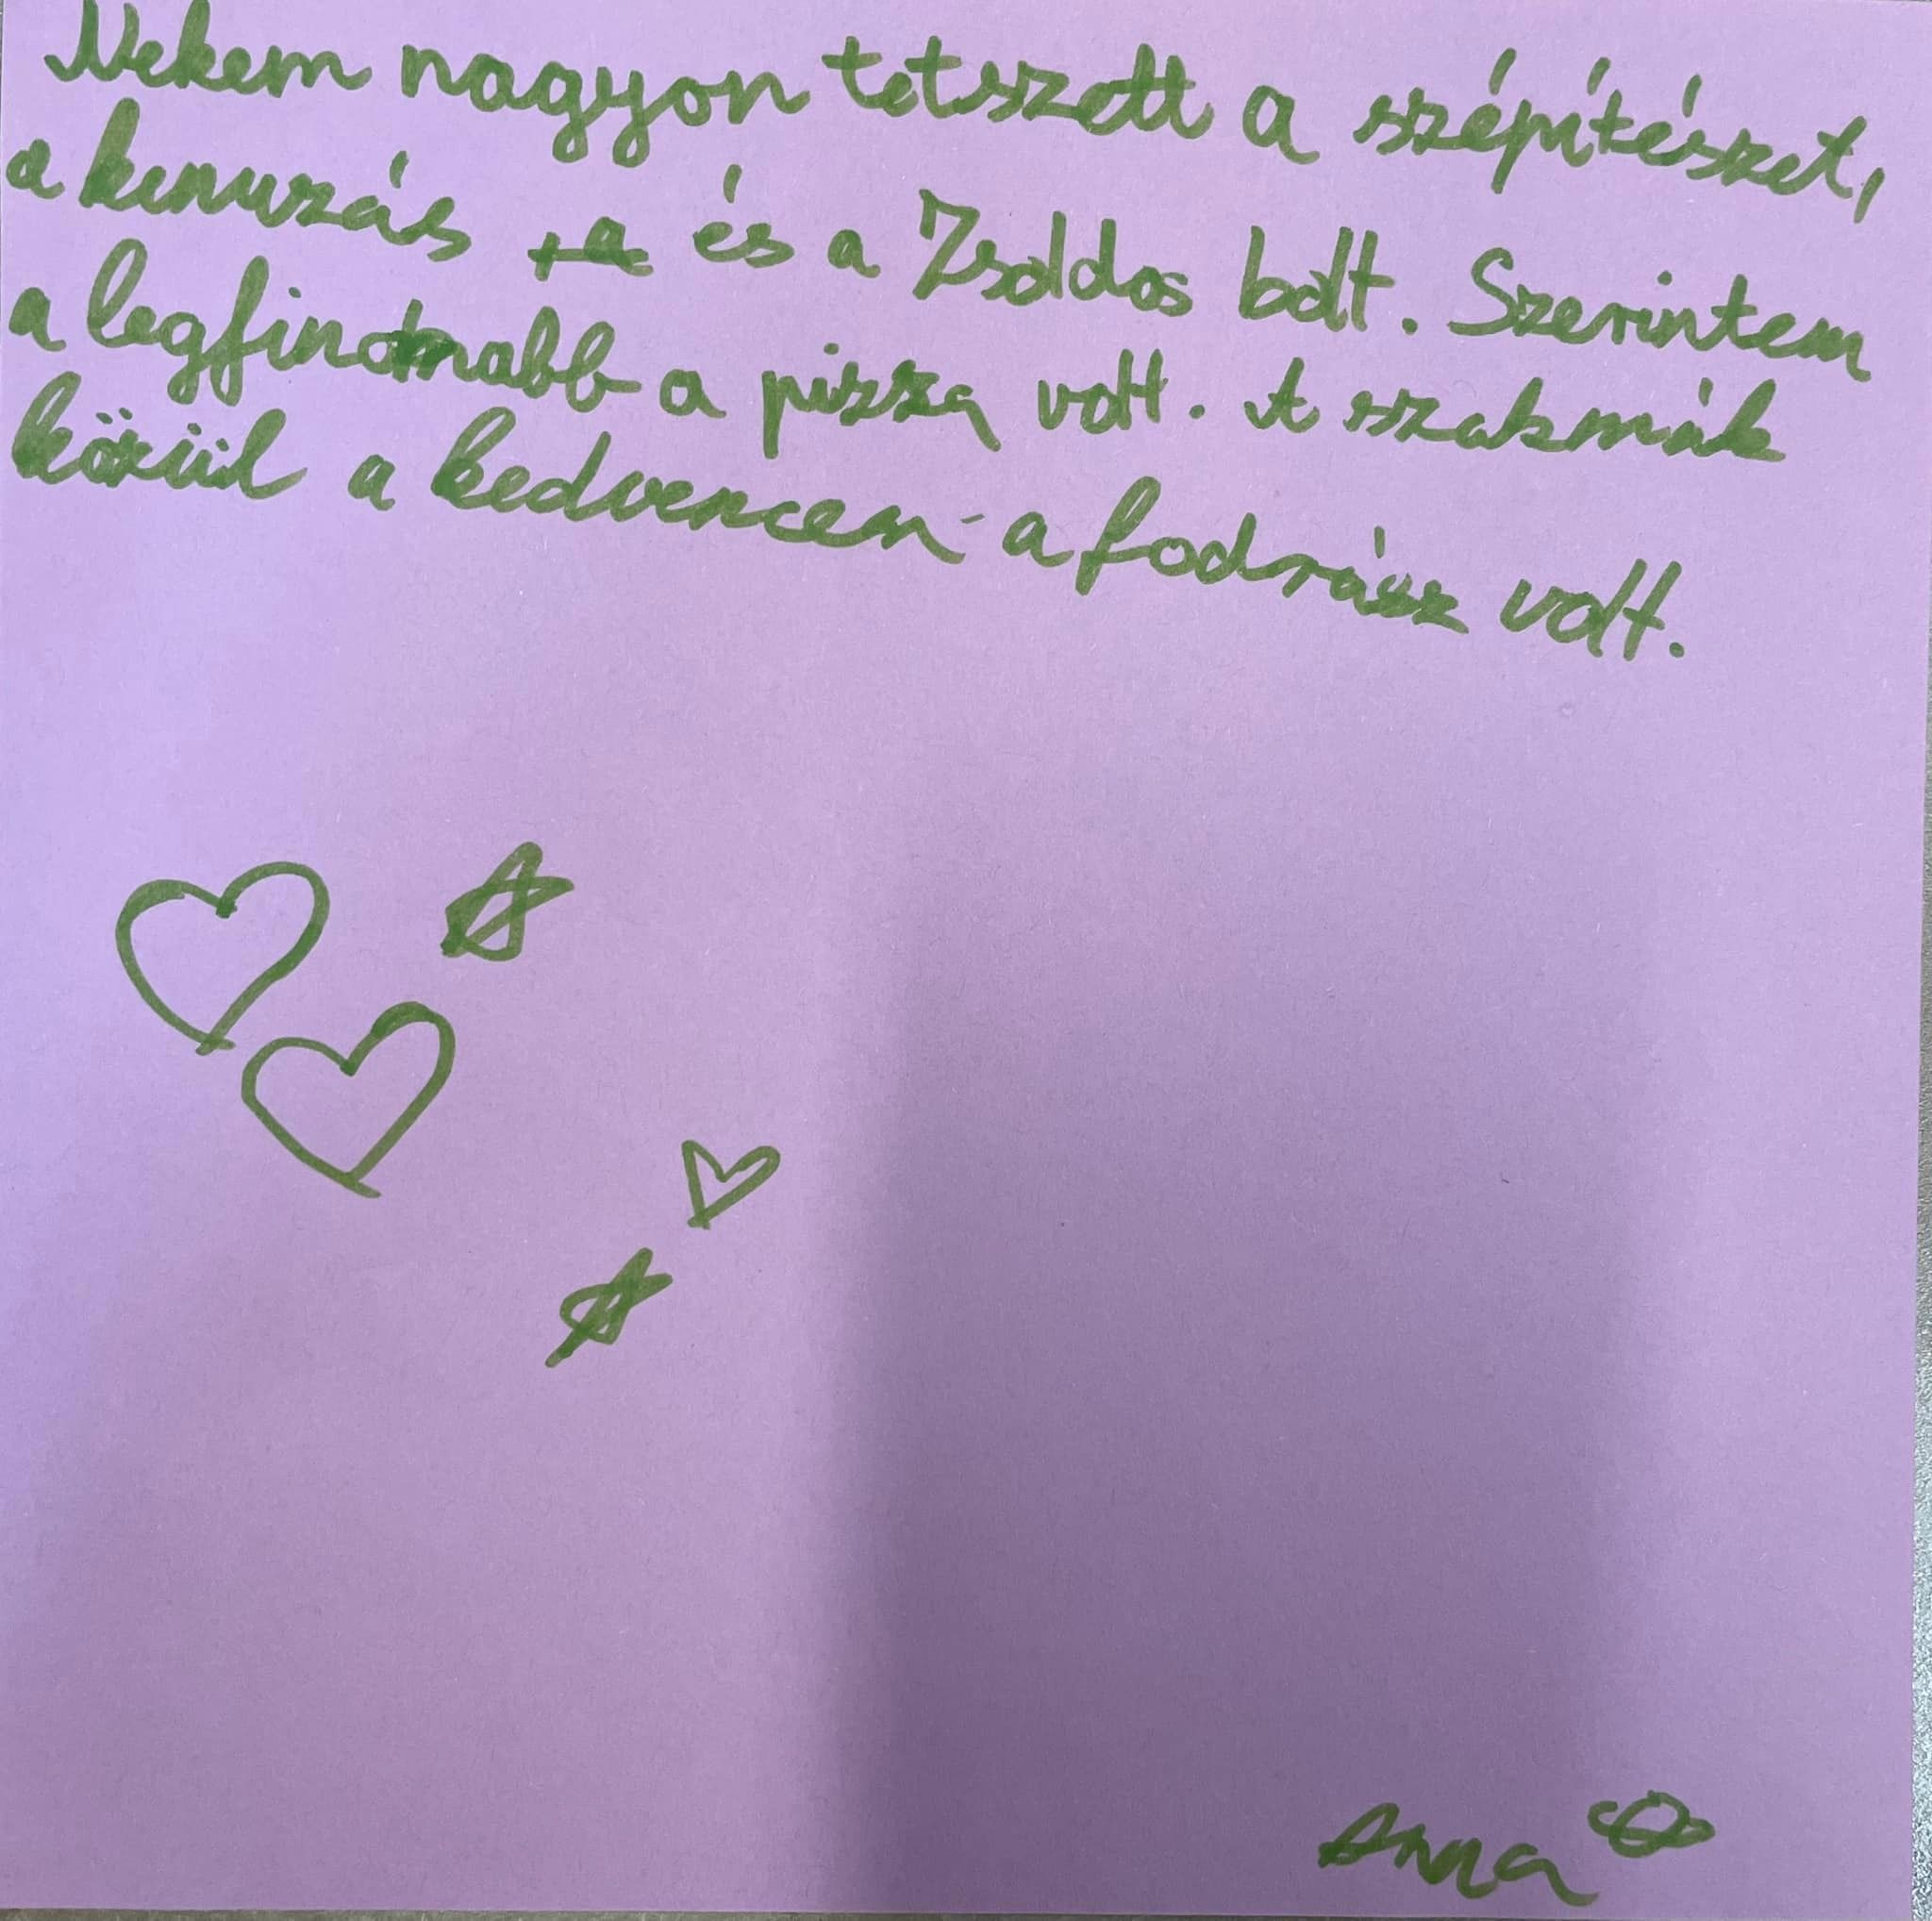 Nekem nagyon tetszett a szépítészet,
a kenuzás és a Zsoldos bolt. Szerintem
a legfinomabb a pizza volt. A szakmák
körül a kedvencem a fodrász volt.
Anna